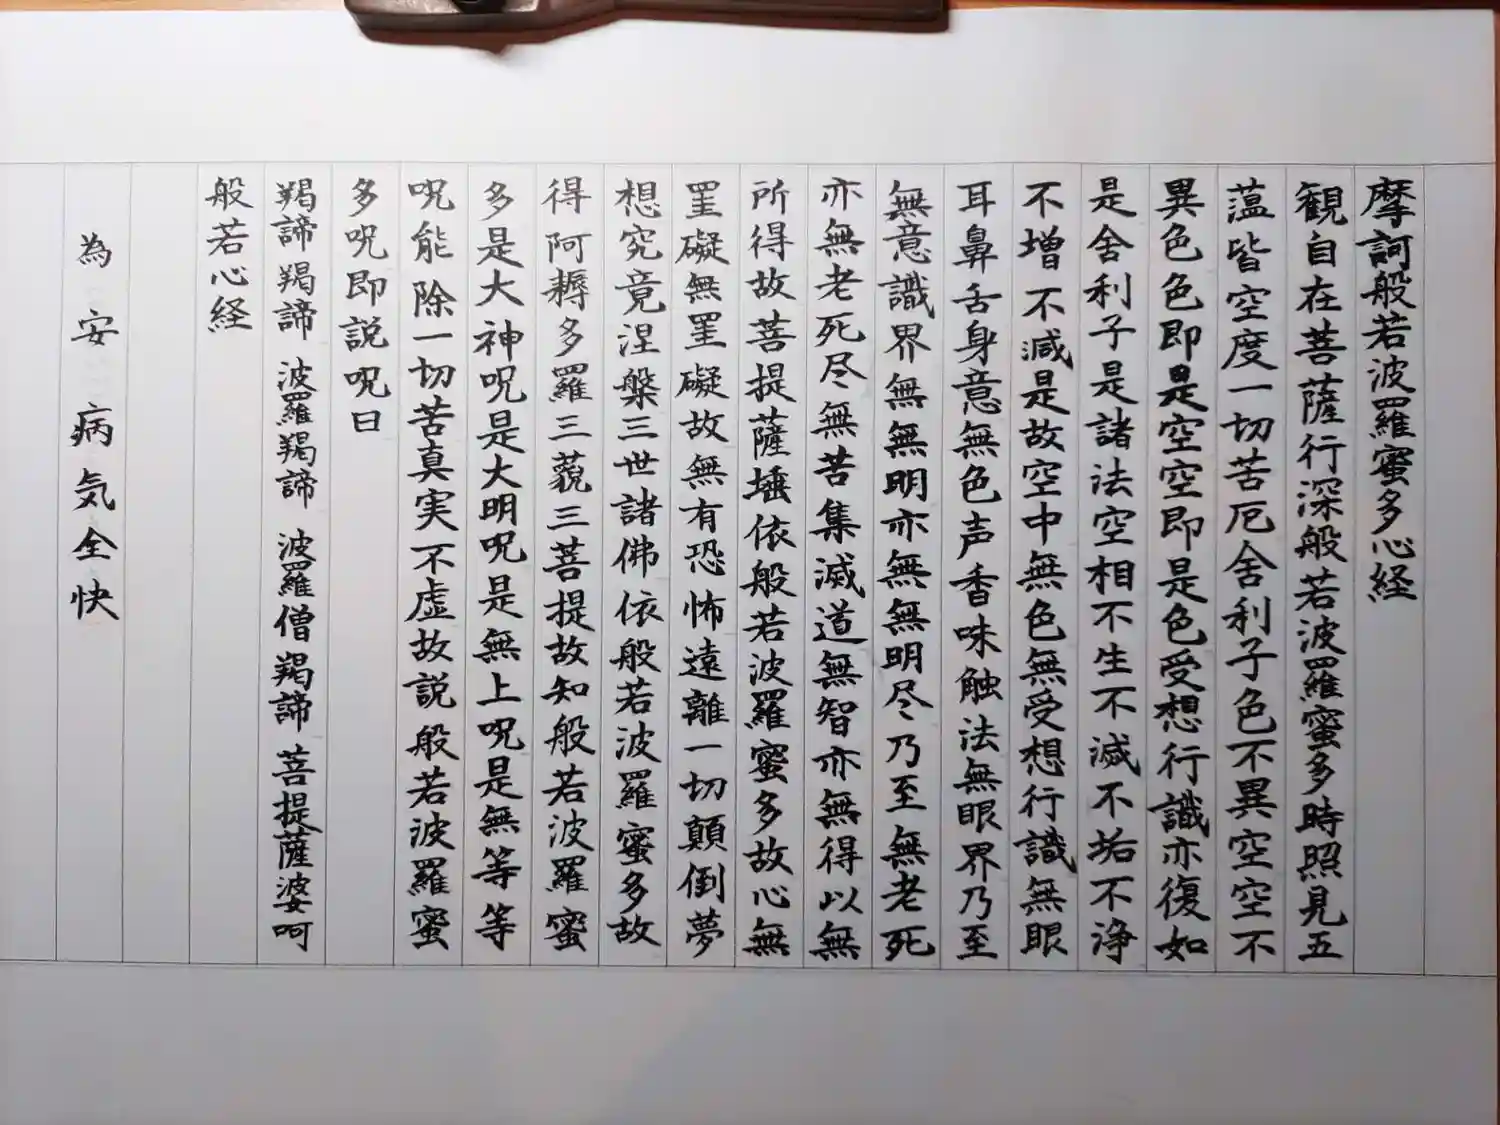 摩訶般若波羅蜜多心経
観自在菩薩行深般若波羅蜜多時照見五
薀皆空度一切苦厄舍利子色不異空空不
異色色即是空空即是色受想行識亦復如
是舍利子是諸法空相不生不滅不垢不浄
不増不減是故空中無色無受想行識無眼
耳鼻舌身意無色声香味触法無眼界乃至
無意識界無無明亦無無明尽乃至無老死
亦無老死尽無苦集滅道無智亦無得以無
所得故菩提薩埵依般若波羅蜜多故心無
罣礙無罣礙故無有恐怖遠離一切顛倒夢
想究竟涅槃三世諸佛依般若波羅蜜多故
得阿耨多羅三藐三菩提故知般若波羅蜜
多是大神呪是大明呪是無上呪是無等等
呪能除一切苦真実不虚故説般若波羅蜜
多呪即説呪曰
羯諦羯諦波羅羯諦波羅僧羯諦菩提薩婆呵
般若心経
為安病気全快